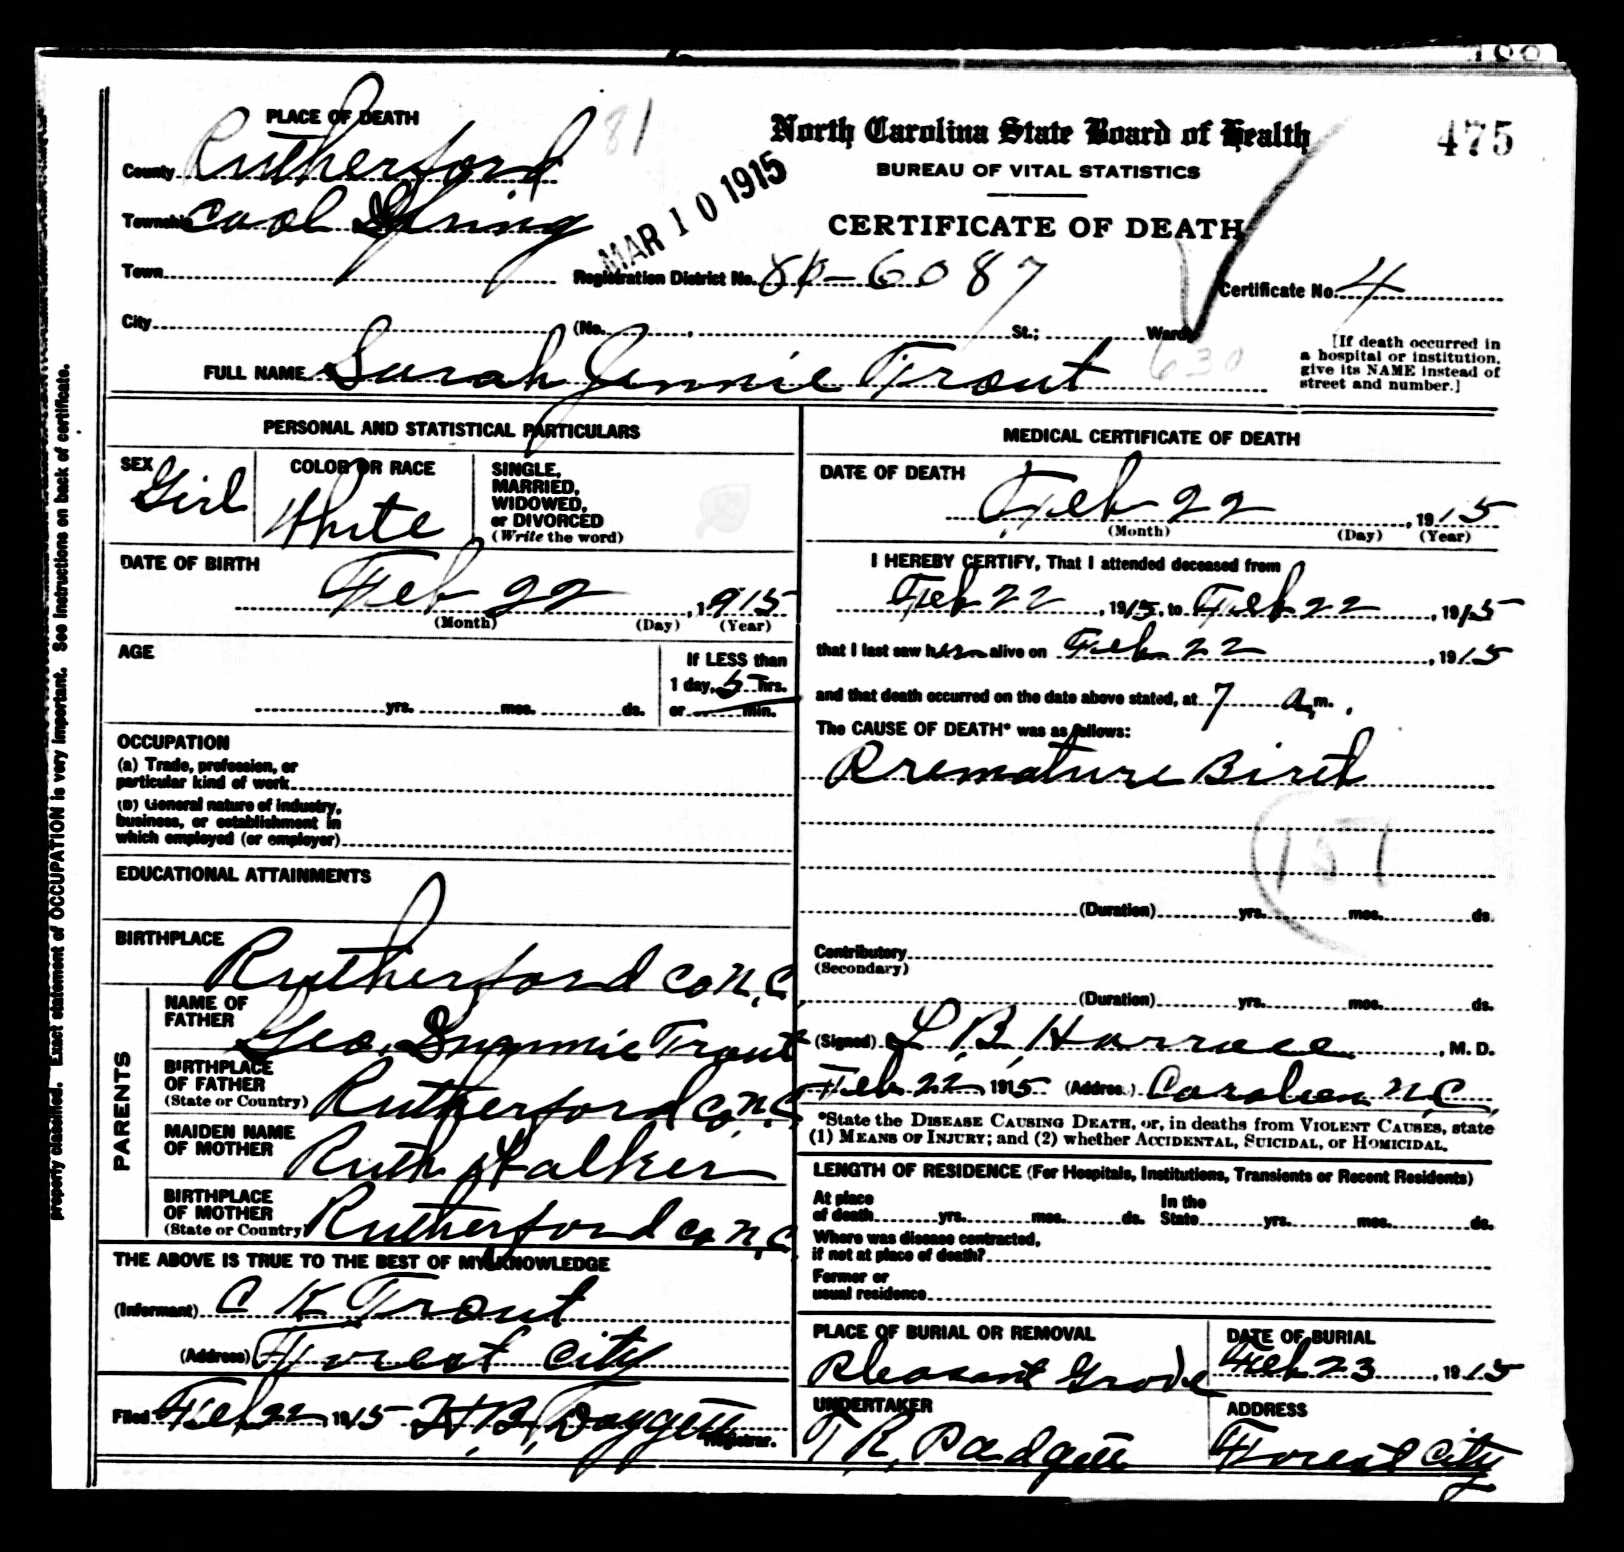 475
North Carolina State Board of Health
BUREAU OF VITAL STATISTICS
CERTIFICATE OF DEATH
PLACE OF DEATH
81
County Rutherford
MAR 10 1915
Township Cool Spring
Town
Registration District No. 81-6087
Certificate No. 4
City (No. , St.; Ward)
630
[If death occurred in
a hospital or institution,
give its NAME instead of
street and number.]
FULL NAME Sarah Jennie Trout
PERSONAL AND STATISTICAL PARTICULARS
SEX Girl
COLOR OR RACE
White
SINGLE,
MARRIED,
WIDOWED,
or DIVORCED
(Write the word)
DATE OF BIRTH
Feb 22, 1915
(Month) (Day) (Year)
AGE
yrs. mos. ds.
If LESS than
1 day, 5 hrs.
or min.
OCCUPATION
(a) Trade, profession, or
particular kind of work
(b) General nature of industry,
business, or establishment in
which employed (or employer)
EDUCATIONAL ATTAINMENTS
BIRTHPLACE
Rutherford Co N.C.
PARENTS
NAME OF
FATHER
Geo. Trout
BIRTHPLACE
OF FATHER
(State or Country) Rutherford Co. N.C.
MAIDEN NAME
OF MOTHER Ruth
BIRTHPLACE
OF MOTHER
(State or Country) Rutherford Co N.C.
THE ABOVE IS TRUE TO THE BEST OF MY KNOWLEDGE
(Informant) C K Trout
(Address) Forest City
Filed Feb 22 1915 Registrar.
MEDICAL CERTIFICATE OF DEATH
DATE OF DEATH
Feb 22, 1915
(Month) (Day) (Year)
I HEREBY CERTIFY, That I attended deceased from
Feb 22, 1915, to Feb 22, 1915
that I last saw her alive on Feb 22, 1915
and that death occurred on the date above stated, at 7 a.m.
The CAUSE OF DEATH* was as follows:
Premature Birth
151
(Duration) yrs. mos. ds.
Contributory
(Secondary)
(Duration) yrs. mos. ds.
(Signed) L. B. , M. D.
Feb 22 1915 (Address) Caroleen N.C.
*State the DISEASE CAUSING DEATH, or, in deaths from VIOLENT CAUSES, state
(1) MEANS OF INJURY; and (2) whether ACCIDENTAL, SUICIDAL, or HOMICIDAL.
LENGTH OF RESIDENCE (For Hospitals, Institutions, Transients or Recent Residents)
At place
of death yrs. mos. ds.
In the
State yrs. mos. ds.
Where was disease contracted,
if not at place of death?
Former or
usual residence
PLACE OF BURIAL OR REMOVAL
Pleasant Grove
DATE OF BURIAL
Feb 23, 1915
UNDERTAKER
T R. Padgett
ADDRESS
Forest City
properly classified. Exact statement of OCCUPATION is very important. See instructions on back of certificate.